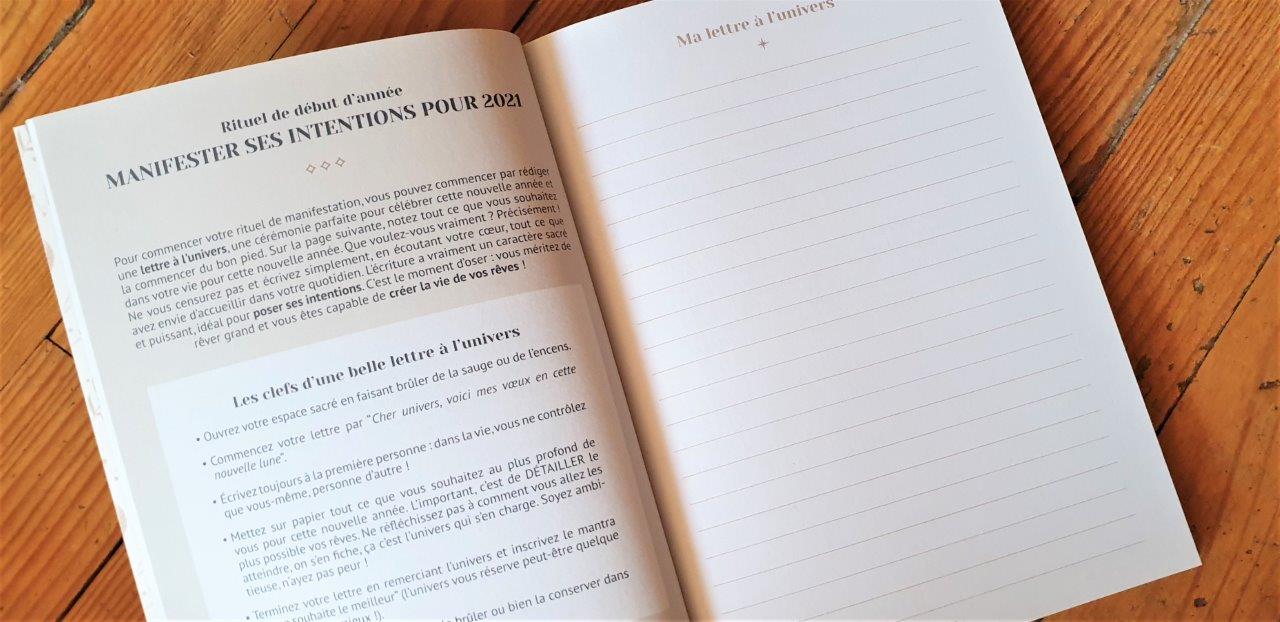 Rituel de début d'année
MANIFESTER SES INTENTIONS POUR 2021
Pour commencer votre rituel de manifestation, vous pouvez commencer par rédiger
une lettre à l'univers, une cérémonie parfaite pour célébrer cette nouvelle année et
la commencer du bon pied. Sur la page suivante, notez tout ce que vous souhaitez
dans votre vie pour cette nouvelle année. Que voulez-vous vraiment ? Précisément !
Ne vous censurez pas et écrivez simplement, en écoutant votre cœur, tout ce que
avez envie d'accueillir dans votre quotidien. L'écriture a vraiment un caractère sacré
et puissant, idéal pour poser ses intentions. C'est le moment d'oser : vous méritez de
rêver grand et vous êtes capable de créer la vie de vos rêves !
Les clefs d'une belle lettre à l'univers
• Ouvrez votre espace sacré en faisant brûler de la sauge ou de l'encens.
• Commencez votre lettre par "Cher univers, voici mes vœux en cette
nouvelle lune".
• Écrivez toujours à la première personne : dans la vie, vous ne contrôlez
que vous-même, personne d'autre !
• Mettez sur papier tout ce que vous souhaitez au plus profond de
vous pour cette nouvelle année. L'important, c'est de DÉTAILLER le
plus possible vos rêves. Ne réfléchissez pas à comment vous allez les
atteindre, on s'en fiche, ça c'est l'univers qui s'en charge. Soyez ambi-
tieuse, n'ayez pas peur !
• Terminez votre lettre en remerciant l'univers et inscrivez le mantra
souhaite le meilleur" (l'univers vous réserve peut-être quelque
!).
brûler ou bien la conserver dans
Ma lettre à l'univers